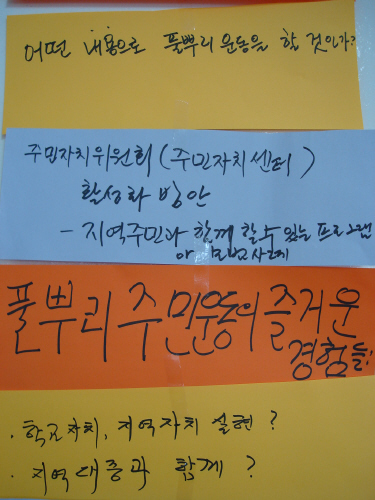 어떤 내용으로 풀뿌리 운동을 할 것인가?
주민자치위원회 (주민자치센터)
활성화 방안
- 지역주민과 함께 할 수 있는 프로그램
및 모범사례
풀뿌리 주민운동의 즐거운
경험들!
· 학교자치, 지역자치 실현?
· 지역대중과 함께?